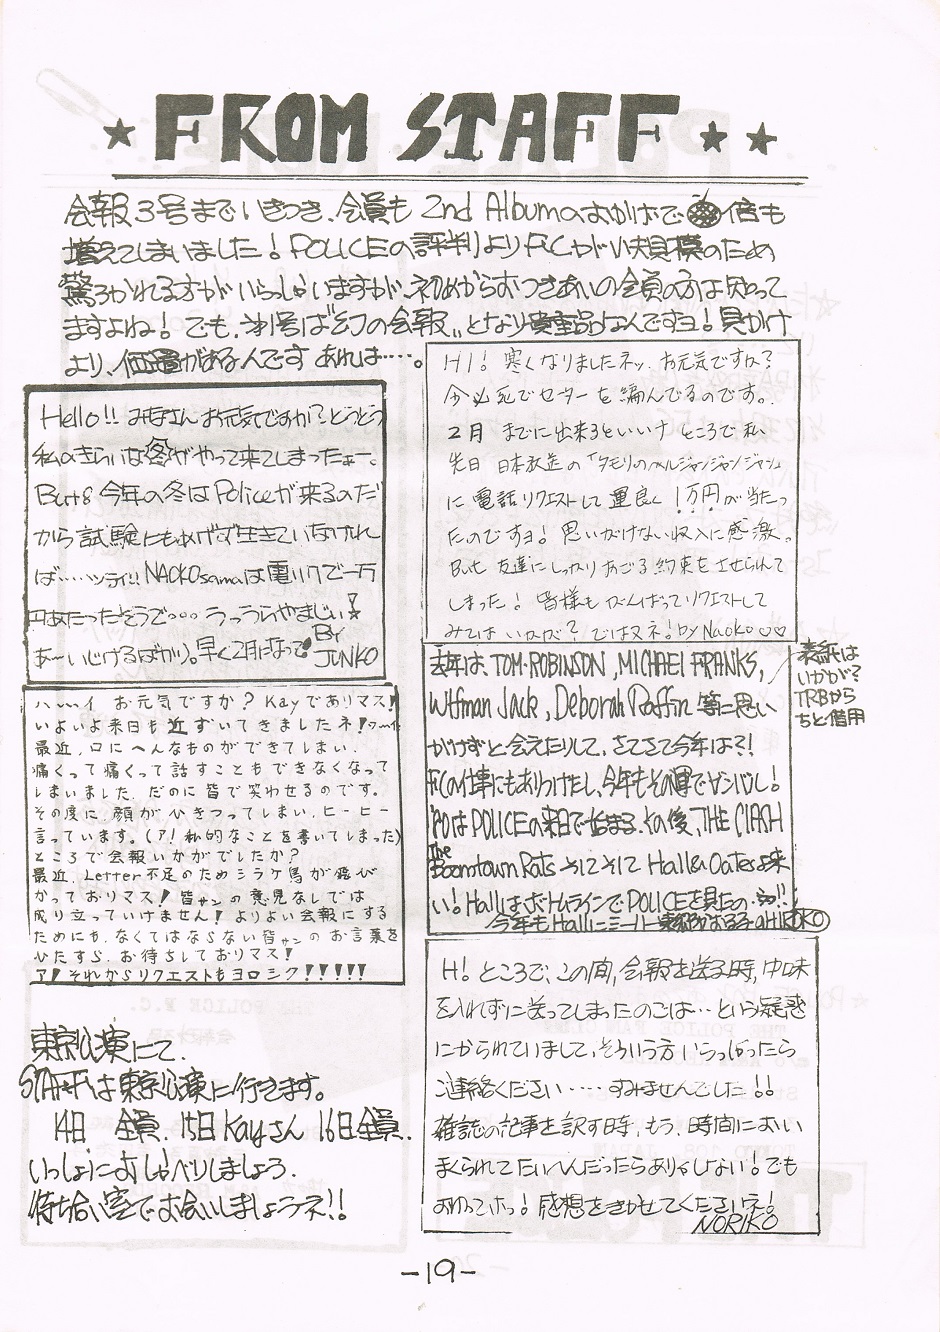 ★FROM STAFF★★
会報3号までいきつき、会員も 2nd Albumのおかげで倍も
増えてしまいました！POLICEの評判よりF.C.が小規模のため
驚ろかれる方がいらっしゃいますが、初めからおつきあいの会員の方は知って
ますよね！でも、沖1号は“幻の会報”となり貴重品なんですヨ！見かけ
より、価値があるんです あれは……。
Hello!! みなさんお元気ですか？とうとう
私のきらいな冬がやって来てしまったぁー。
But 今年の冬はPoliceが来るのだ
から試験にもめげず生きていなけれ
ば……ツライ!! NAOKO samaは電リクで一万
円あたったそうで。。。うっうらやましい！
あ〜いじけるばかり。早く2月になって！
By JUNKO
HI！寒くなりましたネッ。お元気ですか？
今必死でセーターを編んでるのです。
2月までに出来るといいけど ところで私
先日 日本放送の「タモリのベルジャンジャンジャン」
に電話リクエストして運良く1万円が当たっ
たのですヨ！思いがけない収入に感激。
But 友達にしっかりおごる約束をさせられて
しまった！皆様もがんばってリクエストして
みてはいかが？ではマタネ！by Naoko♡♡
ハーイ お元気ですか？Kayでありマス！
いよいよ来日も近ずいてきましたネ！ワーイ
最近、口にへんなものができてしまい、
痛くって痛くって話すこともできなくなって
しまいました。だのに皆で笑わせるのです。
その度に、顔がひきつってしまい、ヒーヒー
言っています。（ア！私的なことを書いてしまった）
ところで会報いかがでしたか？
最近、Letter不足のためシラケ鳥が飛び
かっておりマス！皆サンの意見なしでは
成り立っていけません！よりよい会報にする
ためにも、なくてはならない皆サンのお言葉を
ひたすら、お待ちしておりマス！
ア！それからリクエストもヨロシク！！！！！！
去年は、TOM・ROBINSON, MICHAEL FRANKS,
Wlfman Jack, Deborah Raffin 等に思い
がけずと会えたりして、さてさて今年は？！
FCの仕事にもありつけたし、今年もその運でガンバル！
'80はPOLICEの来日で始まる。その後、THE CLASH
The Boomtown Rats そしてそして Hall & Oatesよ来
い！HallはボトムラインでPOLICEを見たの
今年もHallにミーハー
表紙は
いかが？
TRBから
ちと借用
東京公演にて、
STAFFは東京公演に行きます。
14日 全員、15日 Kayさん 16日全員、
いっしょにおしゃべりしましょう。
待ち合い室でお会いしましょうネ!!
H！ところで、この間、会報を送る時、中味
を入れずに送ってしまったのでは…という疑惑
にかられていまして、そういう方いらっしゃったら
ご連絡ください……すみませんでした!!
雑誌の記事を訳す時、もう、時間においい
まくられてたいへんだったらありゃしない！でも
おわってホッ！感想をきかせてくださいネ！
NORIKO
-19-